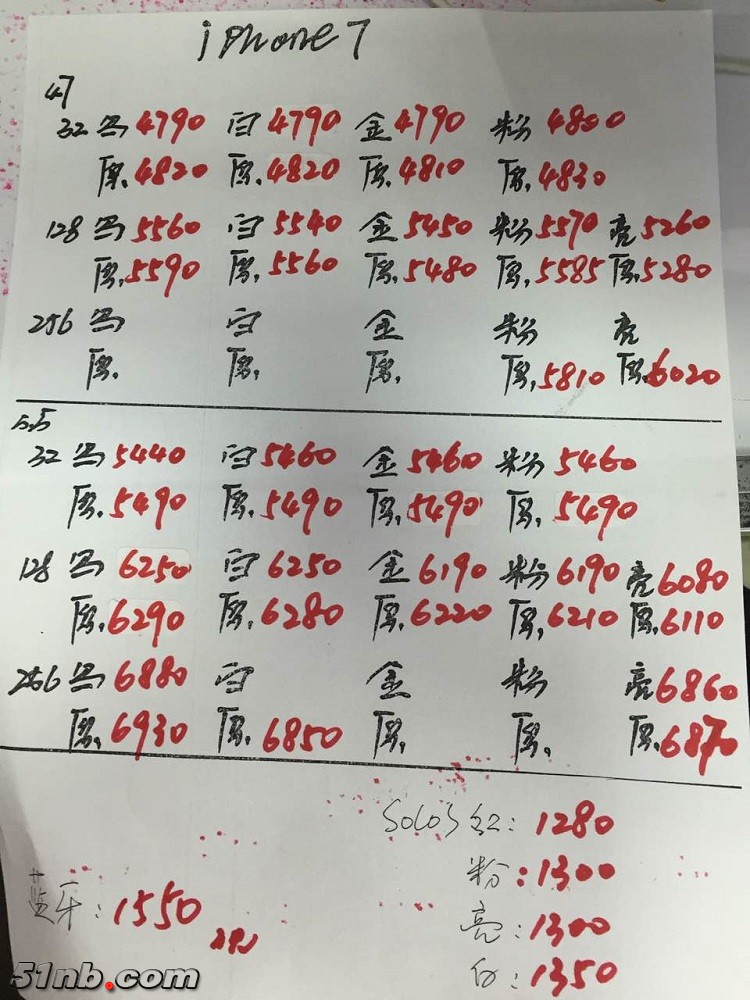 iPhone7
47
32 黑 4790 白 4790 金 4790 粉 4800
原. 4820 原. 4820 原. 4810 原. 4830
128 黑 5560 白 5540 金 5450 粉 5570 亮 5260
原. 5590 原. 5560 原. 5480 原. 5585 原. 5280
256 黑 白 金 粉 亮
原. 原. 原. 原. 5810 原. 6020
5.5
32 黑 5440 白 5460 金 5460 粉 5460
原. 5490 原. 5490 原. 5490 原. 5490
128 黑 6250 白 6250 金 6190 粉 6190 亮 6080
原. 6290 原. 6280 原. 6220 原. 6210 原. 6110
256 黑 6880 白 金 粉 亮 6860
原. 6930 原. 6850 原. 原. 原. 6870
Solo3 红: 1280
粉: 1300
蓝牙: 1550
亮: 1300
白: 1350
51nb.com